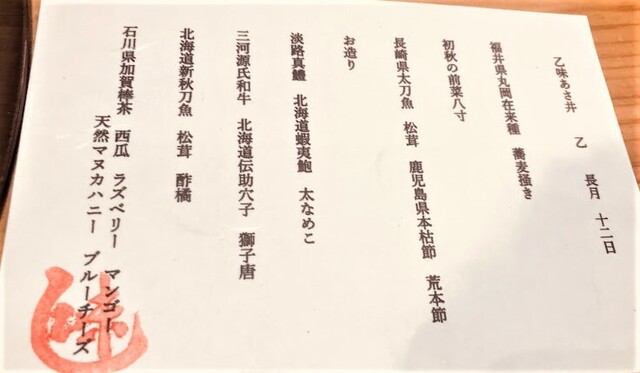 乙味あさ井　乙　長月　十二日
福井県丸岡在来種　蕎麦掻き
初秋の前菜八寸
長崎県太刀魚　松茸　鹿児島県本枯節　荒本節
お造り
淡路真鱧　北海道蝦夷鮑　太なめこ
三河源氏和牛　北海道伝助穴子　獅子唐
北海道新秋刀魚　松茸　酢橘
石川県加賀棒茶　西瓜　ラズベリー　マンゴー
天然マヌカハニー　ブルーチーズ